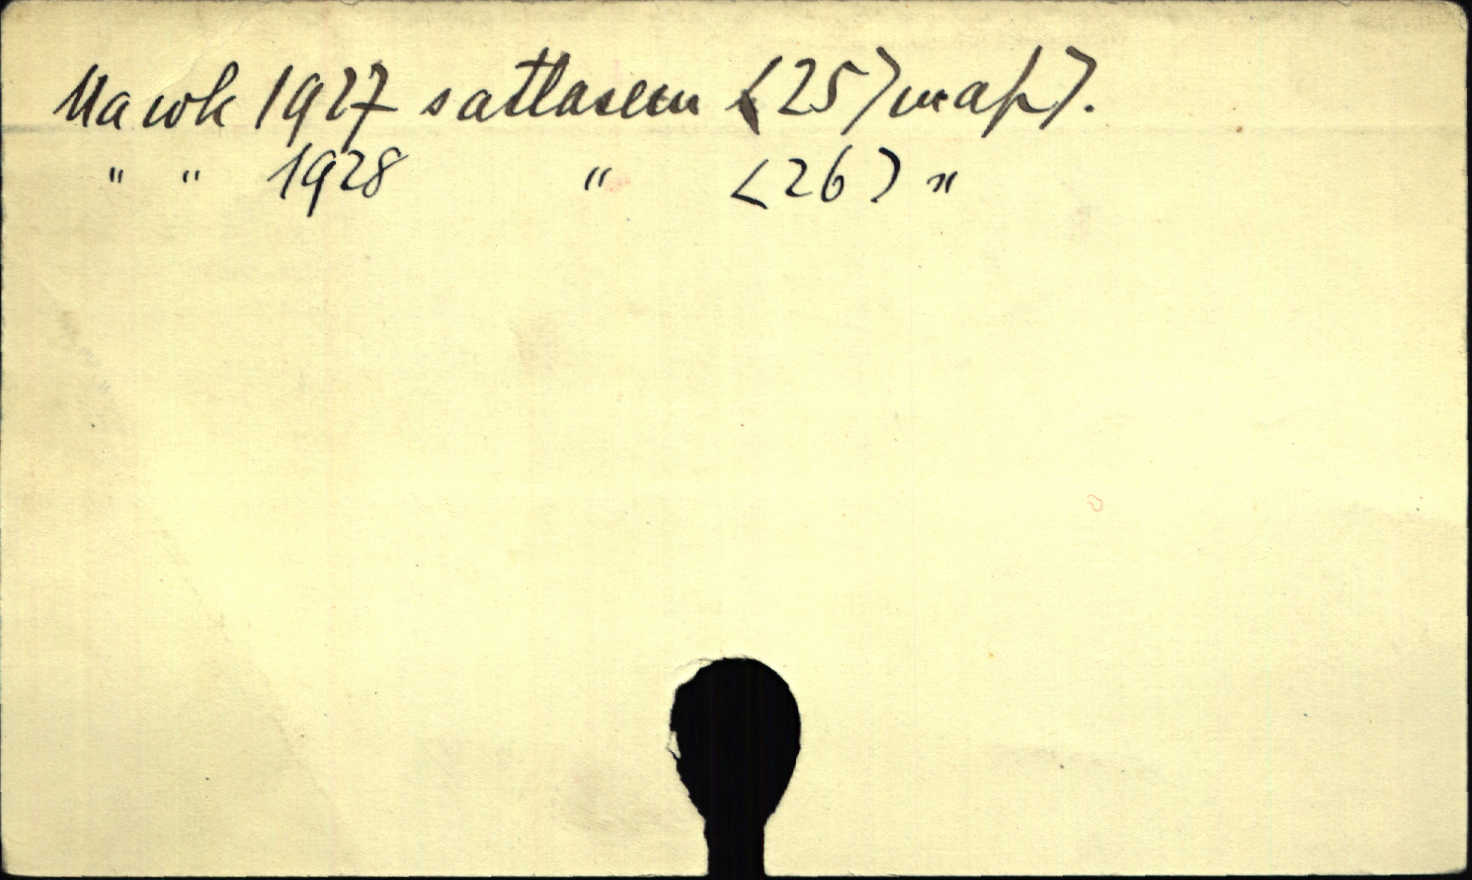 Na rok 1927 s atlasem <25> map>.
" " 1928 " <26> "